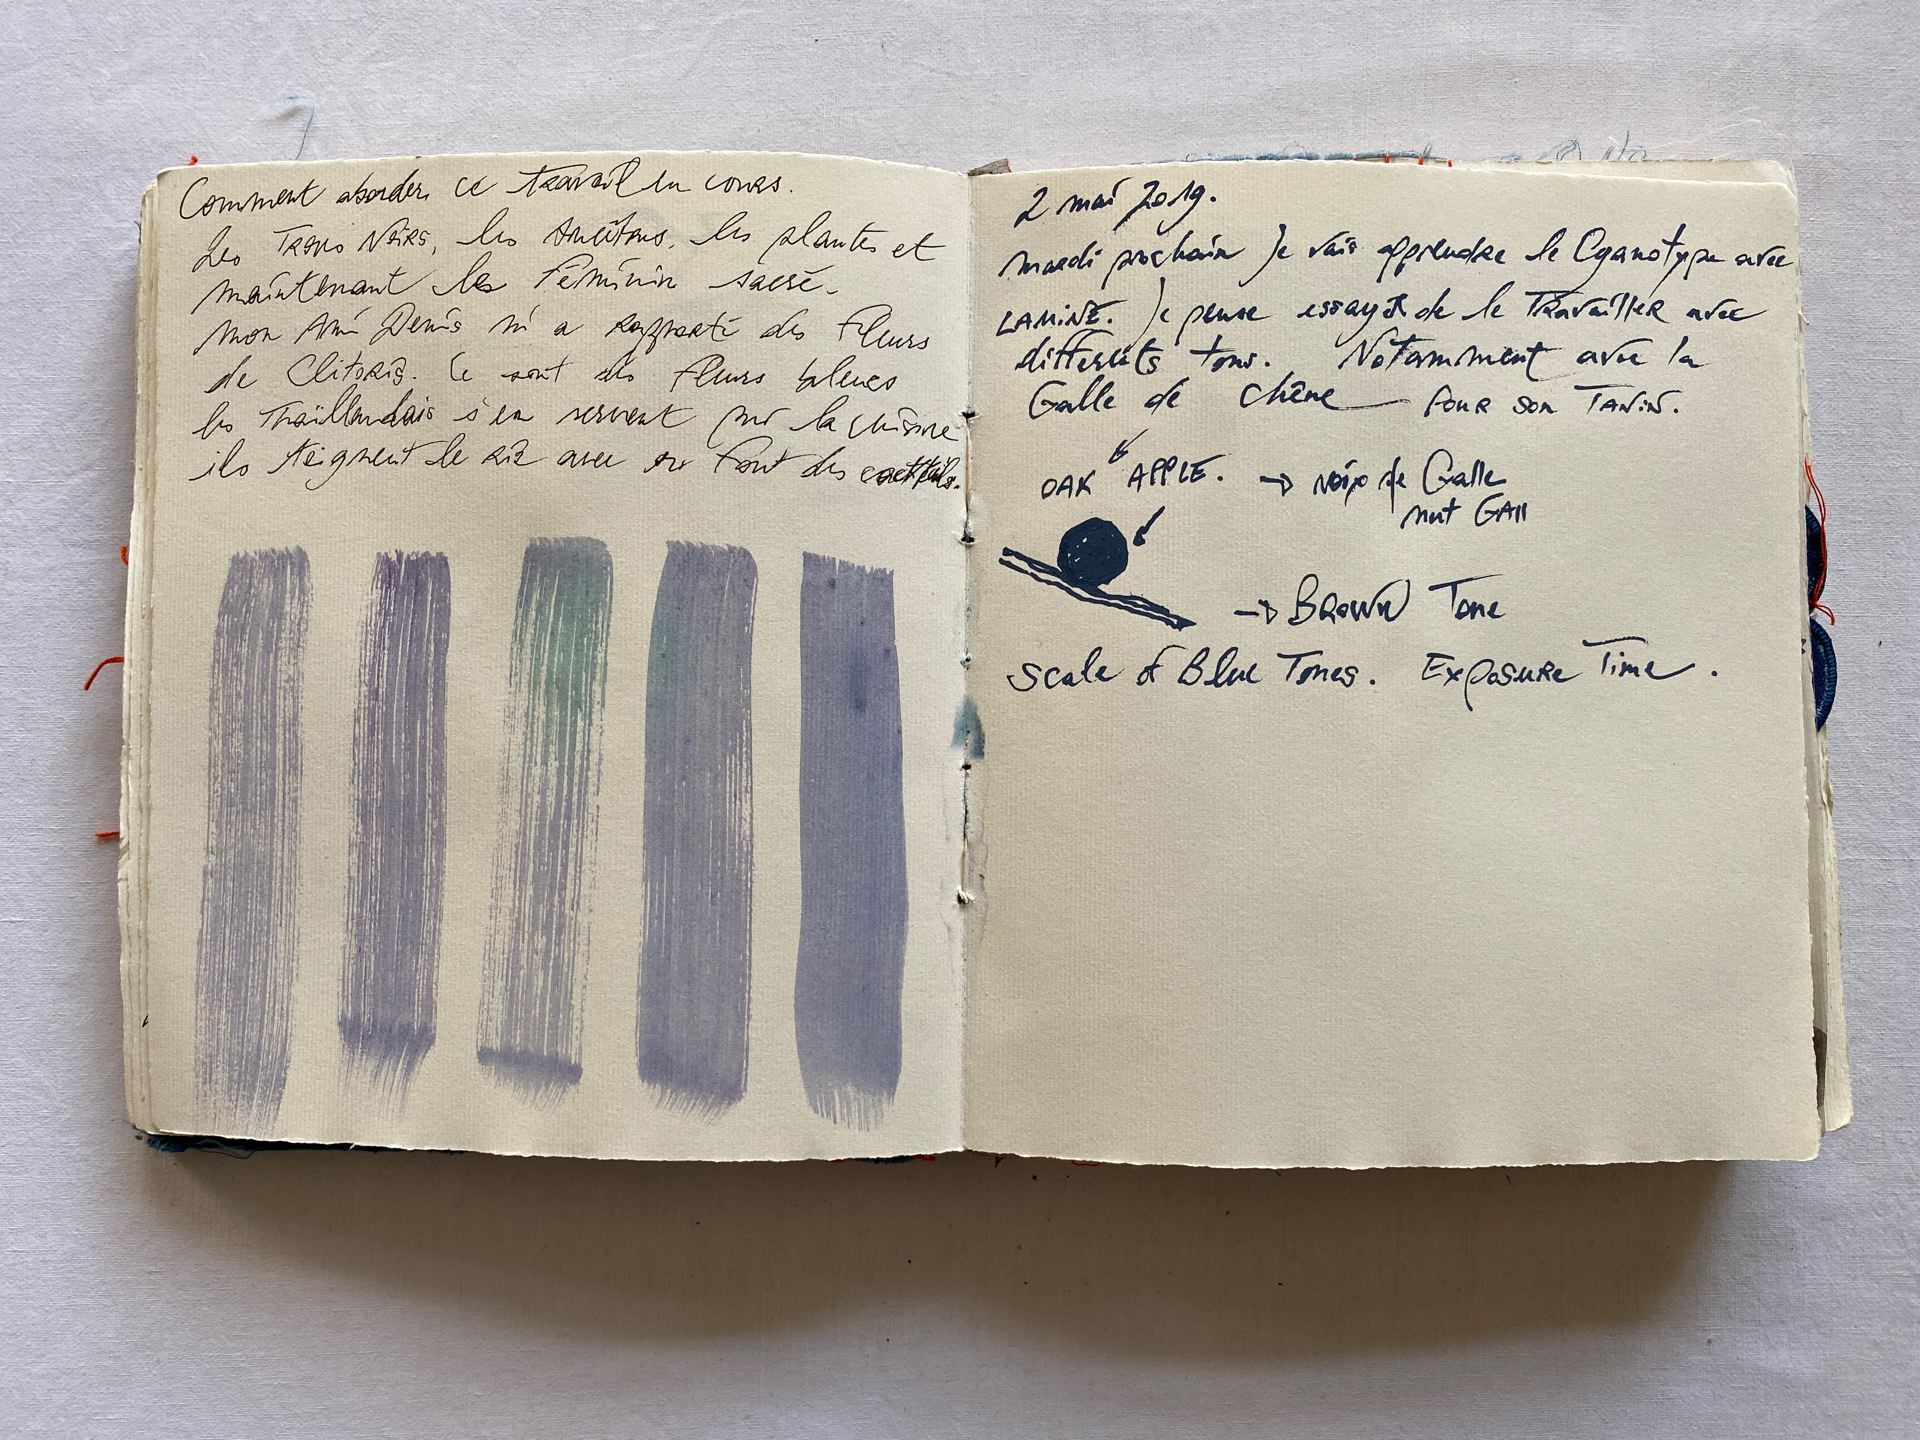 Comment aborder ce travail en cours.
Les Trous Noirs, les Ancêtres, les plantes et
maintenant les Féminin sacré.
mon Ami Denis m'a rapporté des fleurs
de Clitoris. Ce sont des fleurs bleues
les Thaïllandais s'en servent pour la cuisine
ils teignent le riz avec et font des cocktails.
2 mai 2019.
mardi prochain Je vais apprendre le Cyanotype avec
LAMINE. Je pense essayer de le Travailler avec
différents tons. Notamment avec la
Galle de chêne pour son TANIN.
OAK APPLE. → noix de Galle
nut GAll
→ BROWN Tone
Scale of Blue Tones. Exposure Time.